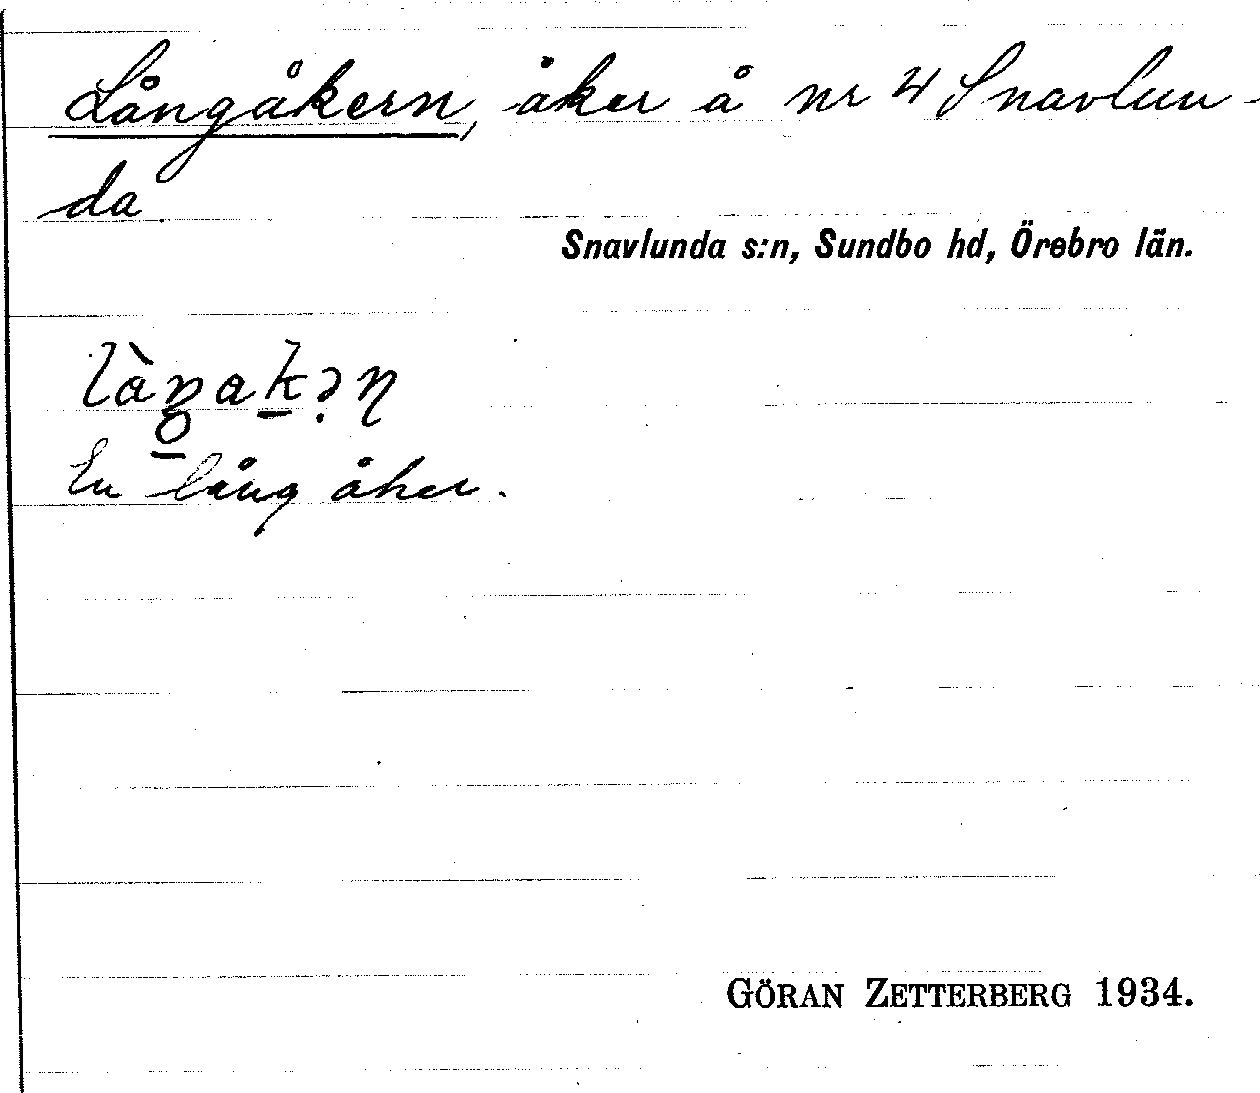 Långåkern, åker å nr 4 Snavlun-
da.
Snavlunda s:n, Sundbo hd, Örebro län.
En lång åker.
GÖRAN ZETTERBERG 1934.